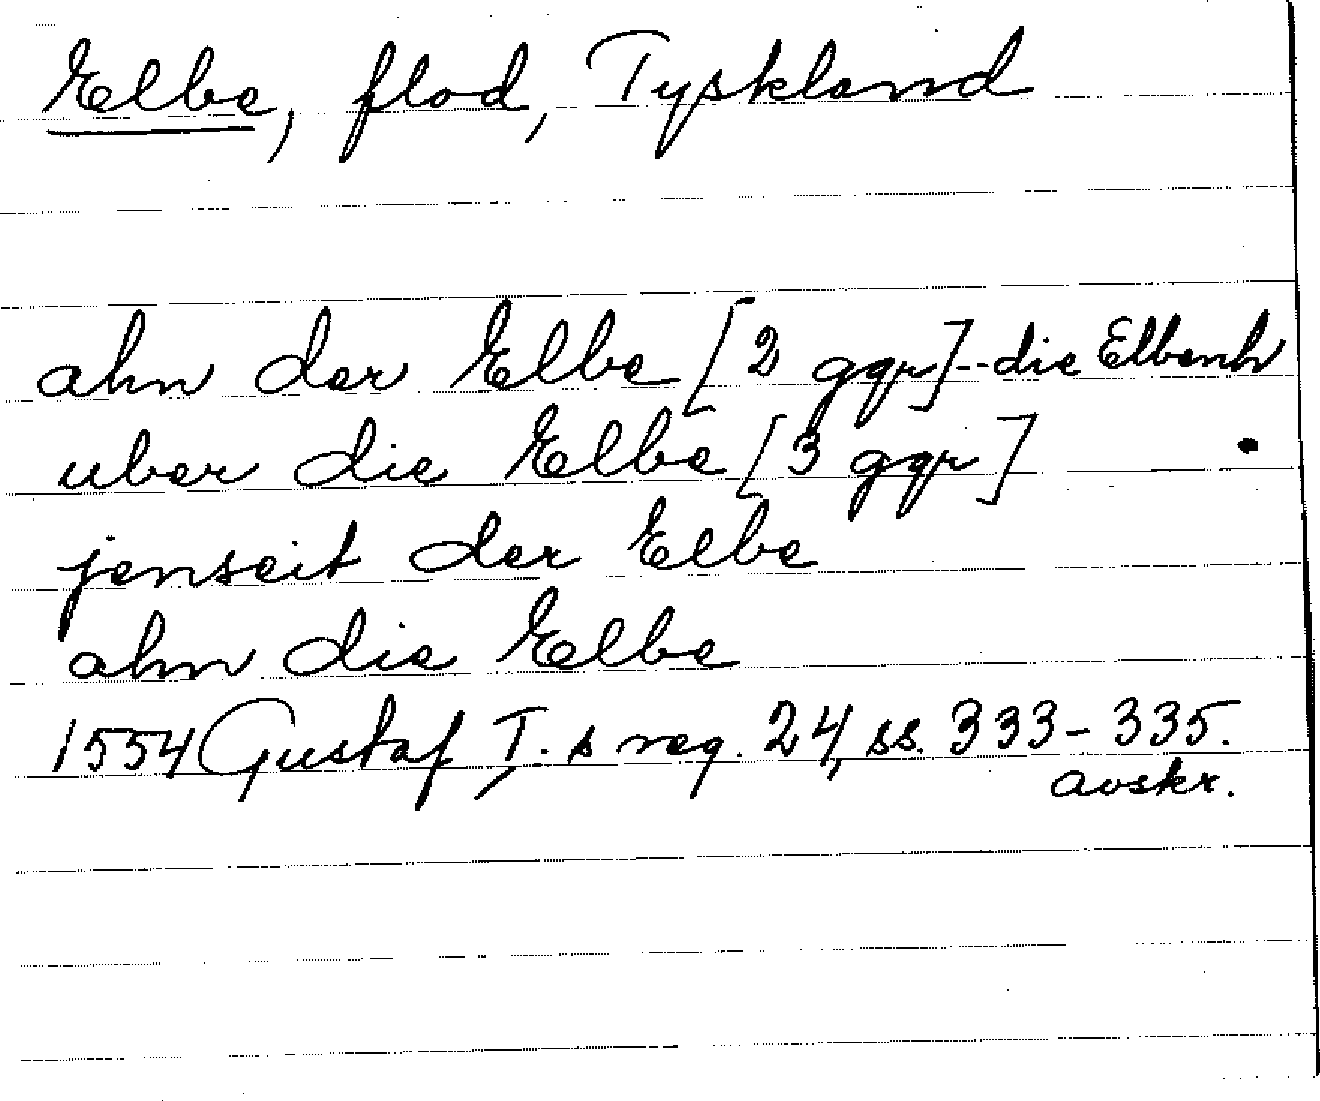 Elbe, flod, Tyskland
ahn der Elbe [2 ggr]--die Elbenh
uber die Elbe [3 ggr]
jenseit der Elbe
ahn die Elbe
1554 Gustaf I:s reg. 24, ss. 333-335.
avskr.